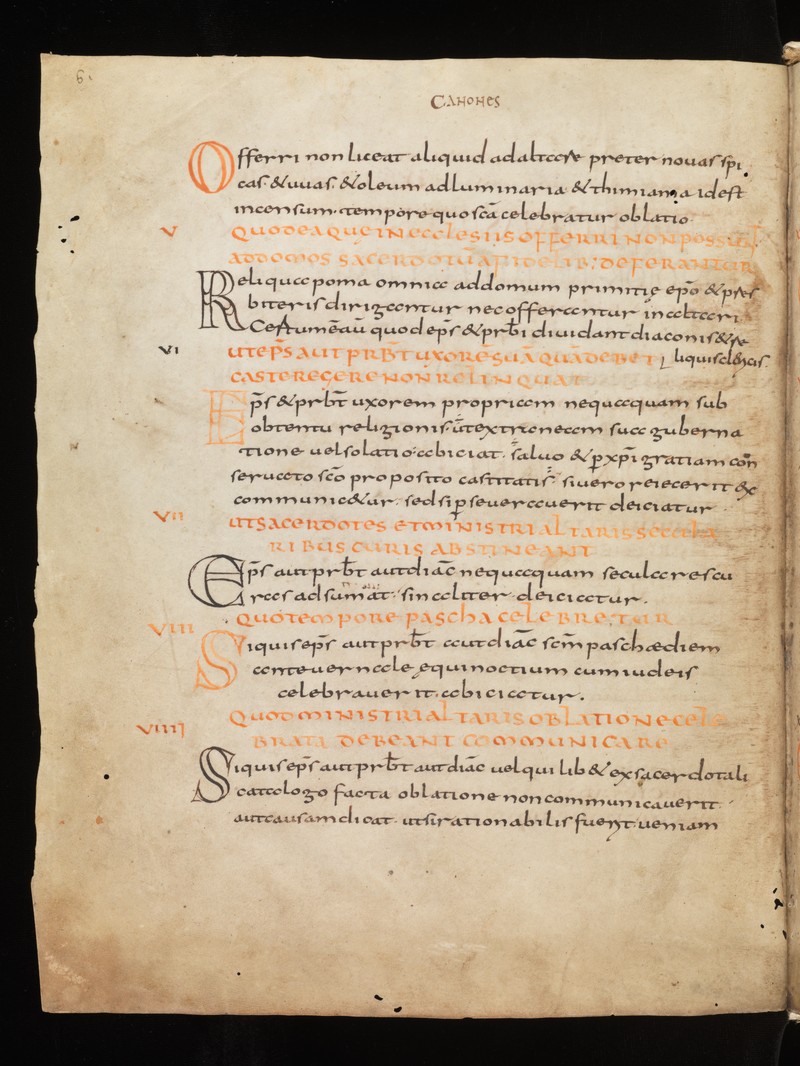 6.
CANONES
Offerri non liceat aliquid ad altare preter nouas spi
cas & uuas & oleum ad luminaria & thimiama id est
incensum tempore quo scā celebratur oblatio
V QUOD EA QUE IN ECCLESIIS OFFERRI NON POSSUNT
AD DOMOS SACERDOTUM A FIDELIB; DEFERANTUR
Reliqua poma omnia ad domum primitię epō & prės
biteris dirigantur nec offerantur in altari
Certum ē aū quod eps̄ & prbī diuidant diaconis & re
VI UT EPS̄ AUT PRBT̄ UXORĒ SUĀ QUĀ DEBET liquis clericis
CASTE REGERE NON RELINQUAT
Eps̄ & prbt̄ uxorem propriam nequaquam sub
obtentu religionis ut extraneam sua guberna
tione uel solatio abiciat. saluo & p xp̄i gratiam con
seruato scō proposito castitatis. si uero reiecerit exc
communic&ur. sed si pseuerauerit deiciatur
VII UT SACERDOTES ET MINISTRI ALTARIS SECULA
RIBUS CURIS ABSTINEANT
Eps̄ aut prbt̄ aut diac̄ nequaquam seculares cu
ras adsumat. sin aliter deiciatur.
VIII QUO TEMPORE PASCHA CELEBRETUR
Siquis eps̄ aut prbt̄ aut diac̄ scm̄ paschæ diem
ante uernale ęquinoctium cum iudeis
celebrauerit. abiciatur.
VIIII QUOD MINISTRI ALTARIS OBLATIONE CELE
BRATA DEBEANT COMMUNICARE
Siquis eps̄ aut prbt̄ aut diac̄ uel quilib& ex sacerdotali
catalogo facta oblatione non communicauerit.
aut causam dicat. ut si rationabilis fuerit. ueniam